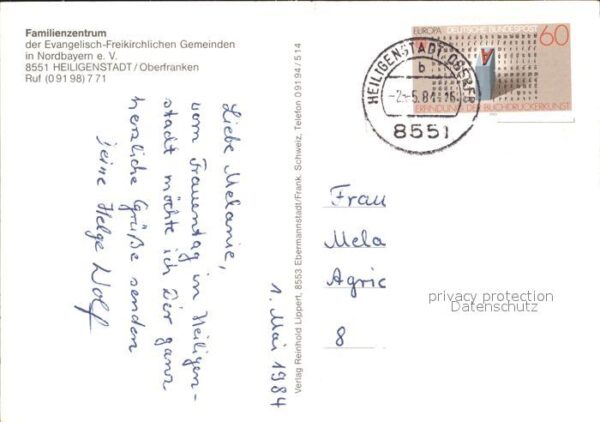 Familienzentrum
der Evangelisch-Freikirchlichen Gemeinden
in Nordbayern e. V.
8551 HEILIGENSTADT/Oberfranken
Ruf (0 91 98) 7 71
Liebe Melanie,
vom Frauentag in Heiligen-
stadt möchte ich Dir ganz
herzliche Grüße senden
Deine Helge Wolf
1. Mai 1984
Verlag Reinhold Lippert, 8553 Ebermannstadt/Fränk. Schweiz, Telefon 0 91 94/5 14
EUROPA DEUTSCHE BUNDESPOST
60
ERFINDUNG DER BUCHDRUCKERKUNST
HEILIGENSTADT
b
-2.-5.84-16
8551
Frau
Mela
Agric
8
privacy protection
Datenschutz